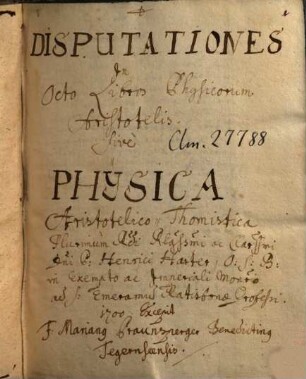 DISPUTATIONES
in
Octo Libros Physicorum
Aristotelis.
Sive
Clm. 27788
PHYSICA
Aristotelico Thomistica
Plurimum Rdi Relgssmi ac Clarssmi
Dni P. Henrici Harter O. S. B.
in Exempto ac Imperiali Monrio
ad S. Emeramum Ratisbonae Professi.
1700 Excepit
F. Mariang Praunsperger Benedicting
Tegernseensis.